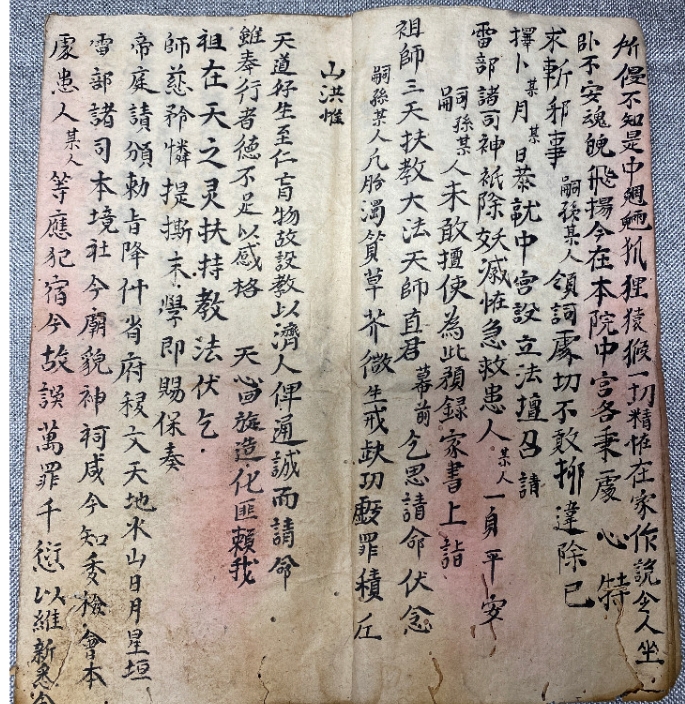 所侵不知是中魍魎狐狸猿猴一切精怪在家作說令人坐
卧不安魂魄飛揚今在本院中宫各秉虔心特
求斬邪事嗣孫某人領詞虔切不敢抑違除已
擇卜某月某日恭就中宫設立法壇召請
雷部諸司神祇除妖滅怪急救患人某人一身平安
嗣孫某人未敢擅使為此預錄家書上詣
祖師三天扶教大法天師直君幕前乞思請命伏念
嗣孫某人凡胎濁質草芥微生戒缺功虧罪積丘
山洪惟
天道好生至仁育物故設教以濟人俾通誠而請命
雖奉行者德不足以感格天心囬旋造化匪賴我
祖在天之灵扶持教法伏乞
師慈矜憐提撕末學即賜保奏
帝庭請頒勅旨降什省府稷文天地水山日月星垣
雷部諸司本境社令廟貌神祠咸令知委檢會本
處患人某人等應犯宿今故誤萬罪千愆以維新悉令